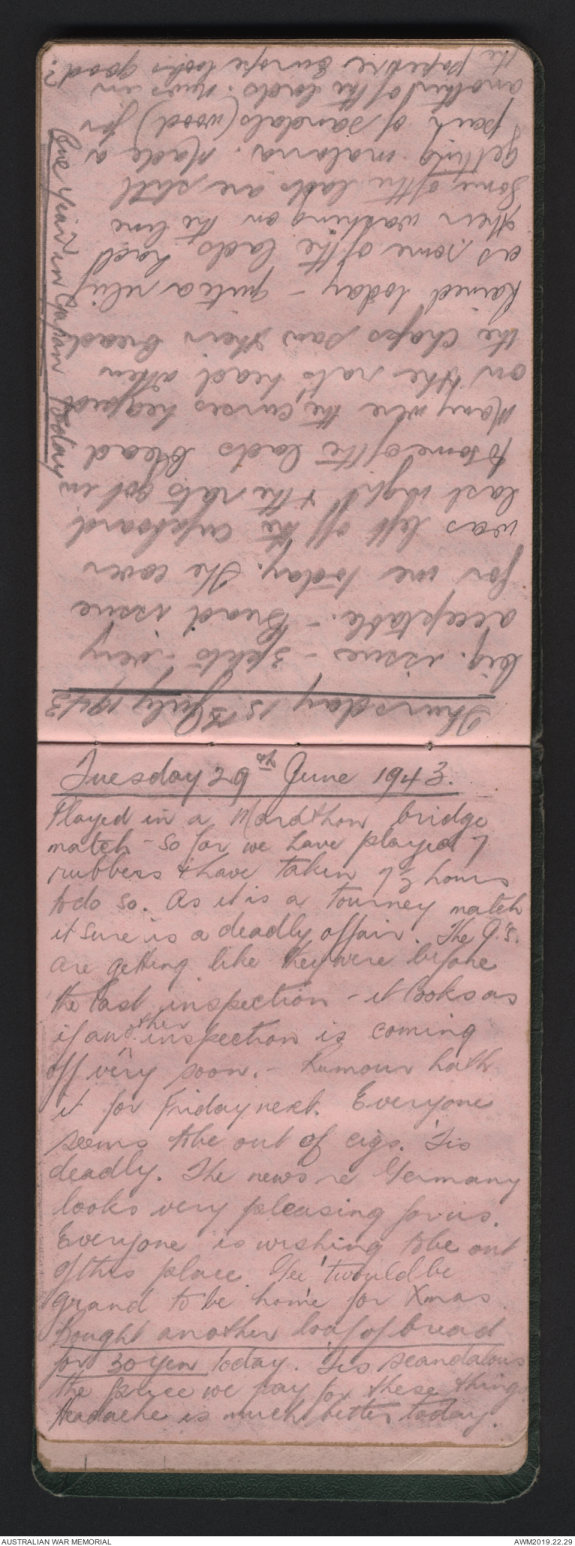 Thursday 15th July 1943
big. issue - 3 pkts - very
acceptable. - Bread issue
for me today. The cover
was left off the cupboard
last night & the rats got in
to some of the lads bread
Many where the curses heaped
on the rats head when
the chaps saw their bread
Rained today - quite a relief
as some of the lads had
their washing on the line
Some of the lads are still
getting malaria. Made a
pair of sandals (wood) for
another of the lads. News in
the paper re Europe looks good?
One year in Japan today
Tuesday 29th June 1943.
Played in a Marathon bridge
match - so far we have played 7
rubbers & have taken 7½ hours
to do so. As it is a tourney match
it sure is a deadly affair. The J's.
are getting like they were before
the last inspection - it looks as
if another inspection is coming
off very soon. - Rumour hath
it for Friday next. Everyone
seems to be out of cigs. 'Tis
deadly. The news re Germany
looks very pleasing for us.
Everyone is wishing to be out
of this place. Gee 'twould be
grand to be home for Xmas.
Bought another loaf of bread
for 30 yen today. 'Tis scandalous
the price we pay for these things
Headache is much better today.
AUSTRALIAN WAR MEMORIAL
AWM2019.22.29